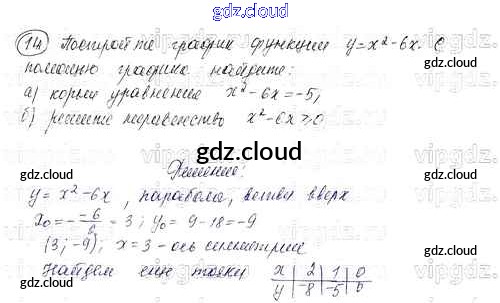 gdz.cloud
14 Постройте график функции y=x²-6x. С
помощью графика найдите:
а) корни уравнения x²-6x=-5;
б) решение неравенства x²-6x≥0
gdz.cloud
Решение:
y = x²-6x, парабола, ветви вверх
x₀=-\frac{-6}{2}=3; y₀= 9-18=-9
(3;-9); x=3-ось симметрии
Найдем ещё точки x | 2 | 1 | 0
y | -8 | -5 | 0
gdz.cloud